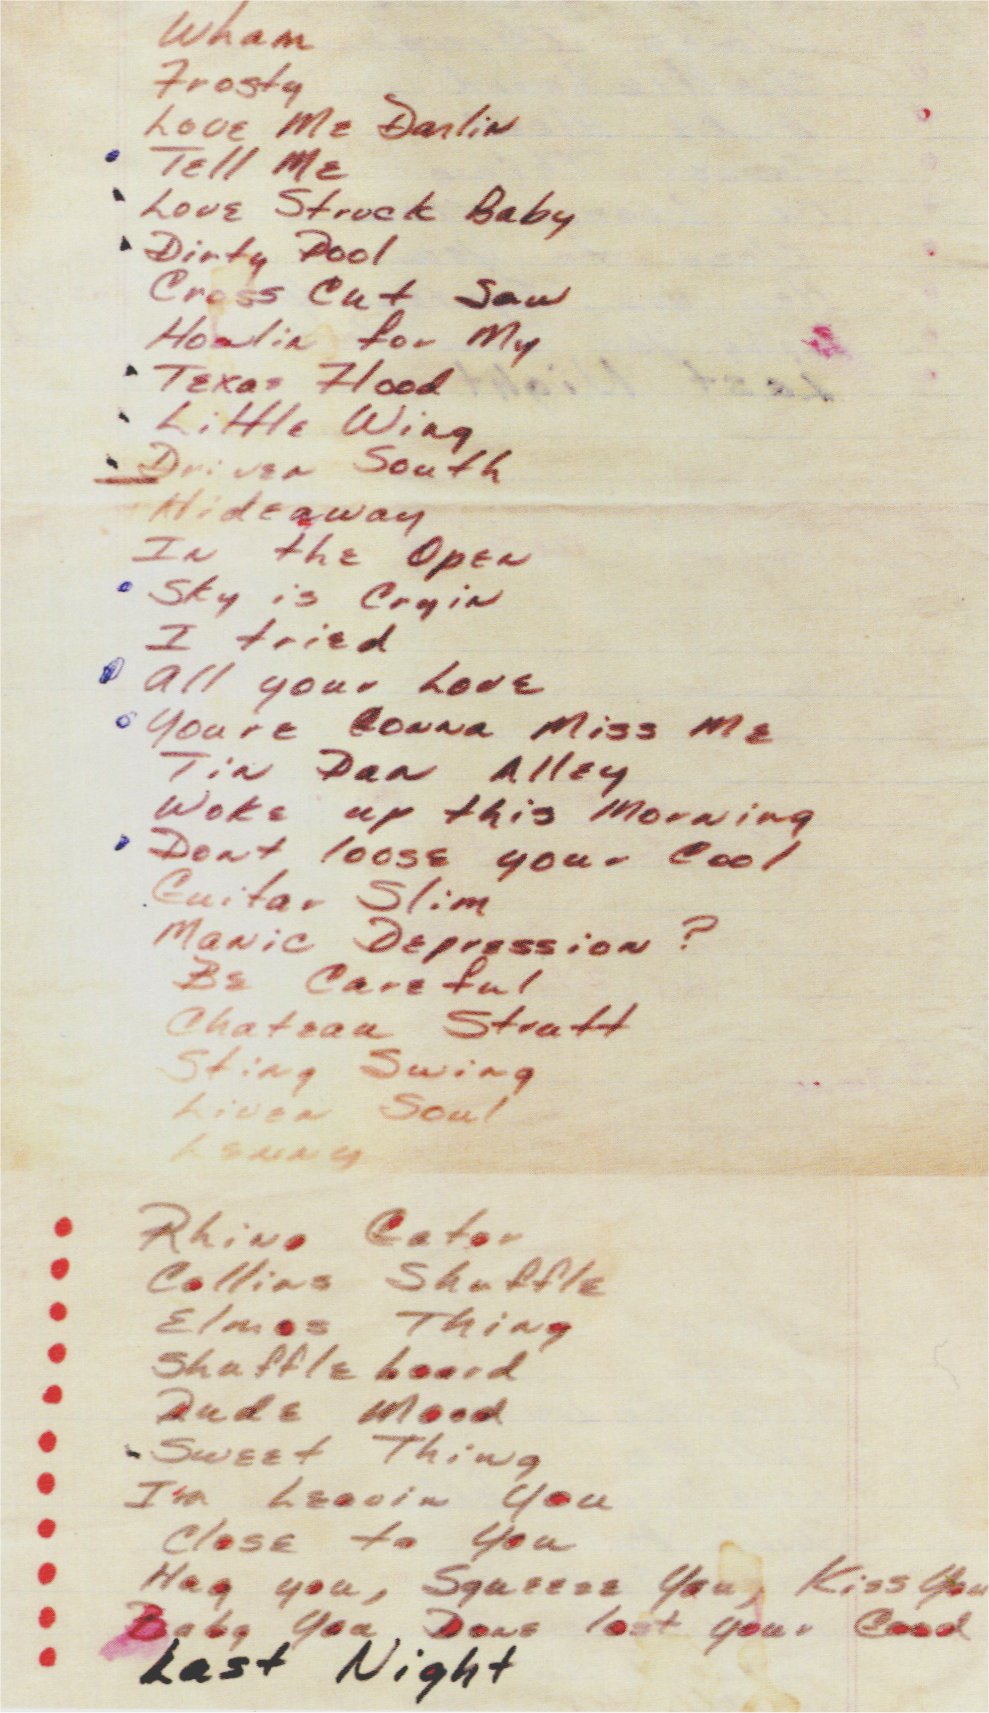 Wham
Frosty
Love Me Darlin
Tell Me
Love Struck Baby
Dirty Pool
Cross Cut Saw
Howlin for My
Texas Flood
Little Wing
Driven South
Hideaway
In the Open
Sky is Cryin
I tried
All your Love
Youre Gonna Miss Me
Tin Pan Alley
Woke up this Morning
Dont loose your Cool
Guitar Slim
Manic Depression ?
Be Careful
Chateau Strutt
Sting Swing
Liven Soul
Lenny
Rhino Eator
Collins Shuffle
Elmos Thing
Shuffle board
Dude Mood
Sweet Thing
I'm Leavin You
Close to You
Hug you, Squeeze You, Kiss You
Baby You Done lost your Good
Last Night